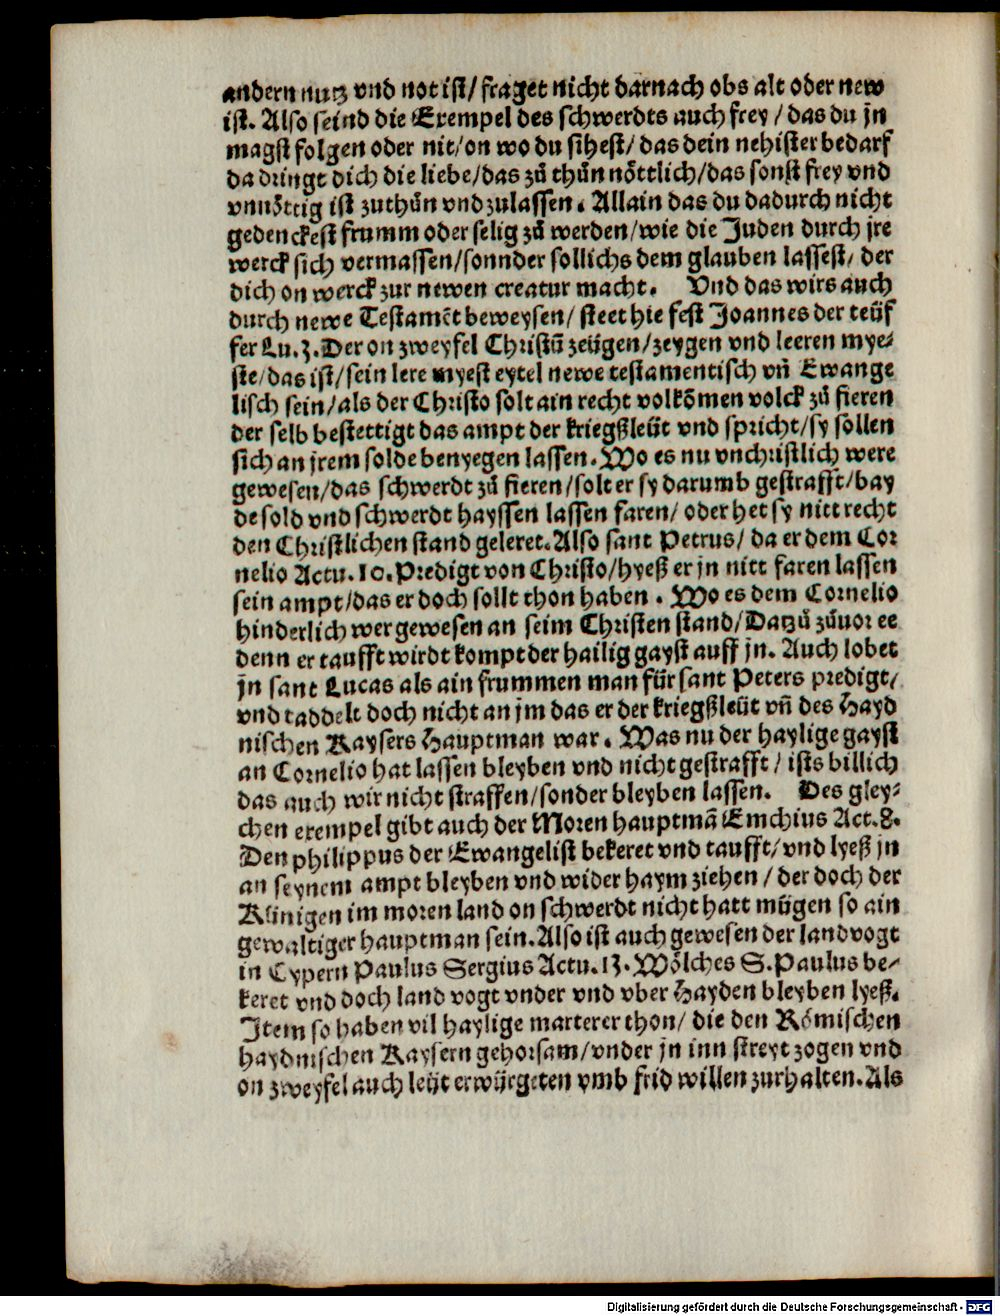 andern nutz vnd not ist/ fraget nicht darnach obs alt oder new
ist. Also seind die Exempel des schwerdts auch frey / das du jn
magst folgen oder nit/ on wo du sihest/ das dein nehister bedarf
da dringt dich die liebe/das zů thůn nöttlich/das sonst frey vnd
vnnöttig ist zuthůn vnd zulassen. Allain das du dadurch nicht
gedenckest frumm oder selig zů werden/wie die Juden durch jre
werck sich vermassen/sonnder sollichs dem glauben lassest/ der
dich on werck zur newen creatur macht. Vnd das wirs auch
durch newe Testamēt beweysen/ steet hie fest Joannes der teüf
fer Lu.3. Der on zweyfel Christū zeügen/zeygen vnd leeren mye⸗
ste/das ist/sein lere myest eytel newe testamentisch vñ Ewange
lisch sein/als der Christo solt ain recht volkōmen volck zů fieren
der selb bestettigt das ampt der kriegßleüt vnd spricht/sy sollen
sich an jrem solde benyegen lassen. Wo es nu vnchristlich were
gewesen/das schwerdt zů fieren/solt er sy darumb gestrafft/bay
de sold vnd schwerdt hayssen lassen faren/ oder het sy nitt recht
den Christlichen stand geleret. Also sant Petrus/ da er dem Cor
nelio Actu.10. Predigt von Christo/hyeß er jn nitt faren lassen
sein ampt/das er doch sollt thon haben . Wo es dem Cornelio
hinderlich wer gewesen an seim Christen stand/Datzů zůuor ee
denn er taufft wirdt kompt der hailig gayst auff jn. Auch lobet
jn sant Lucas als ain frummen man für sant Peters predigt/
vnd taddelt doch nicht an jm das er der kriegßleüt vñ des Hayd
nischen Kaysers Hauptman war. Was nu der haylige gayst
an Cornelio hat lassen bleyben vnd nicht gestrafft / ists billich
das auch wir nicht straffen/sonder bleyben lassen. Des gley⸗
chen exempel gibt auch der Moren hauptmā Emchius Act.8.
Den philippus der Ewangelist bekeret vnd taufft/ vnd lyeß jn
an seynem ampt bleyben vnd wider haym ziehen / der doch der
Künigen im moren land on schwerdt nicht hatt mügen so ain
gewaltiger hauptman sein. Also ist auch gewesen der landvogt
in Cypern Paulus Sergius Actu.13. Wölches S. Paulus be⸗
keret vnd doch land vogt vnder vnd vber Hayden bleyben lyeß.
Item so haben vil haylige marterer thon/ die den Römischen
haydnischen Kaysern gehorsam/vnder jn inn streyt zogen vnd
on zweyfel auch leüt erwürgeten vmb frid willen zurhalten. Als
Digitalisierung gefördert durch die Deutsche Forschungsgemeinschaft - DFG